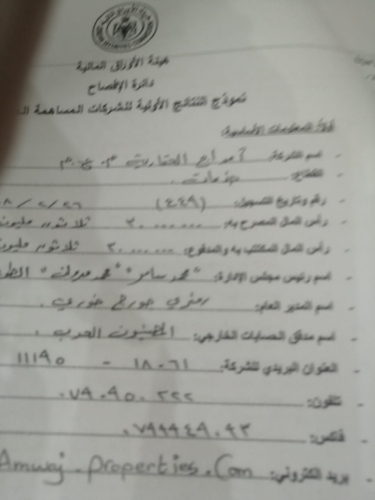 هيئة الأوراق المالية
دائرة الإفصاح
نموذج النتائج الأولية للشركات المساهمة
أولاً: المعلومات الأساسية:
- اسم الشركة: أمواج العقارية م.ع.م
- القطاع: خدمات.
- رقم وتاريخ التسجيل: (٤٤٩) ٨/٢/٢٦
- رأس المال المصرح به: ٣٠٠٠٠٠٠٠ ثلاثون مليون
- رأس المال المكتتب به والمدفوع: ٣٠٠٠٠٠٠٠ ثلاثون مليون
- اسم رئيس مجلس الإدارة: "محمد سامر"
- اسم المدير العام: رمزي جورج خوري.
- اسم مدقق الحسابات الخارجي: المهنيون العرب.
- العنوان البريدي للشركة: ١٨٠٦١ - ١١١٩٥
- تلفون: ٠٧٩٠٩٥٠٢٢٢
- فاكس: ٠٧٩٩٤٤٩٠٩٣
- بريد الكتروني: Amwaj.properties.Com